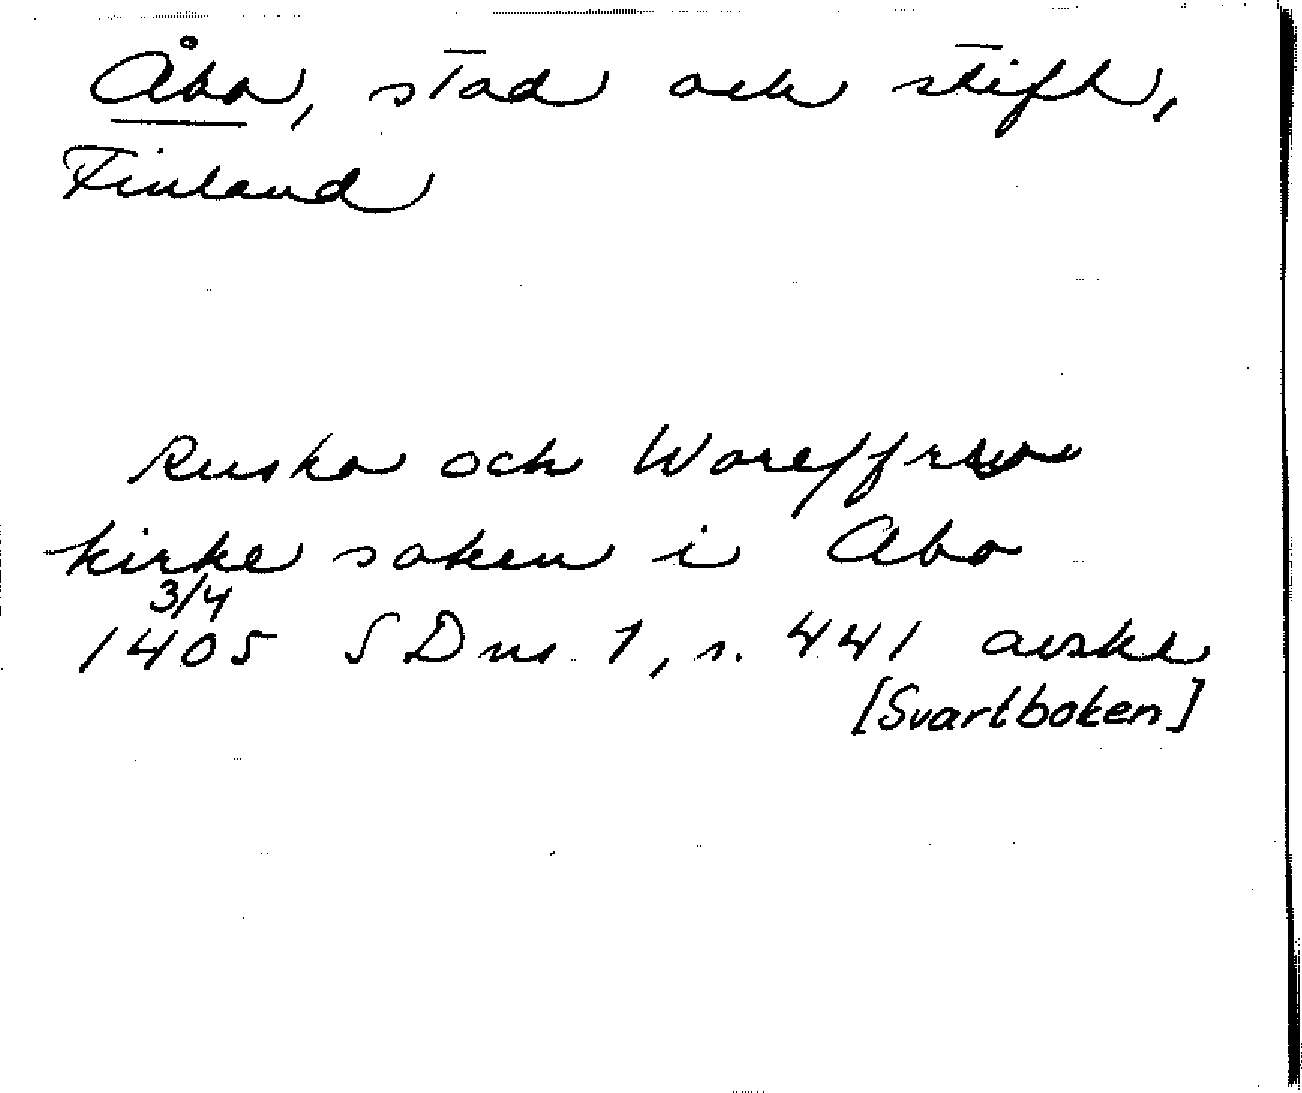 Åbo, stad och stift,
Finland
Rusko och Wore/ffrwe
kirke soken i Abo
3/4
1405 SDns 1, s. 441 avskr
[Svartboken]